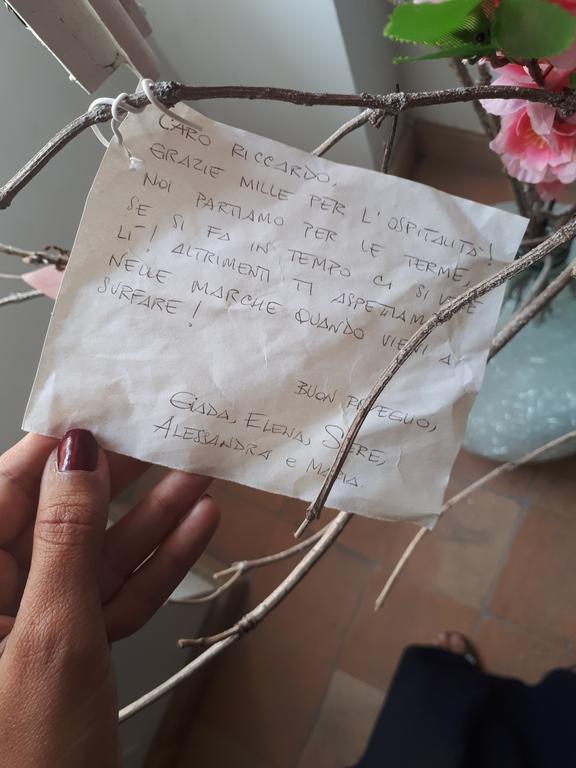 CARO RICCARDO,
GRAZIE MILLE PER L'OSPITALITA'!
NOI PARTIAMO PER LE TERME,
SE SI FA IN TEMPO CI SI VEDE
LI'! ALTRIMENTI TI ASPETTIAMO
NELLE MARCHE QUANDO VIENI A
SURFARE!
BUON RISVEGLIO,
GIADA, ELENA, SERE,
ALESSANDRA e MARIA.